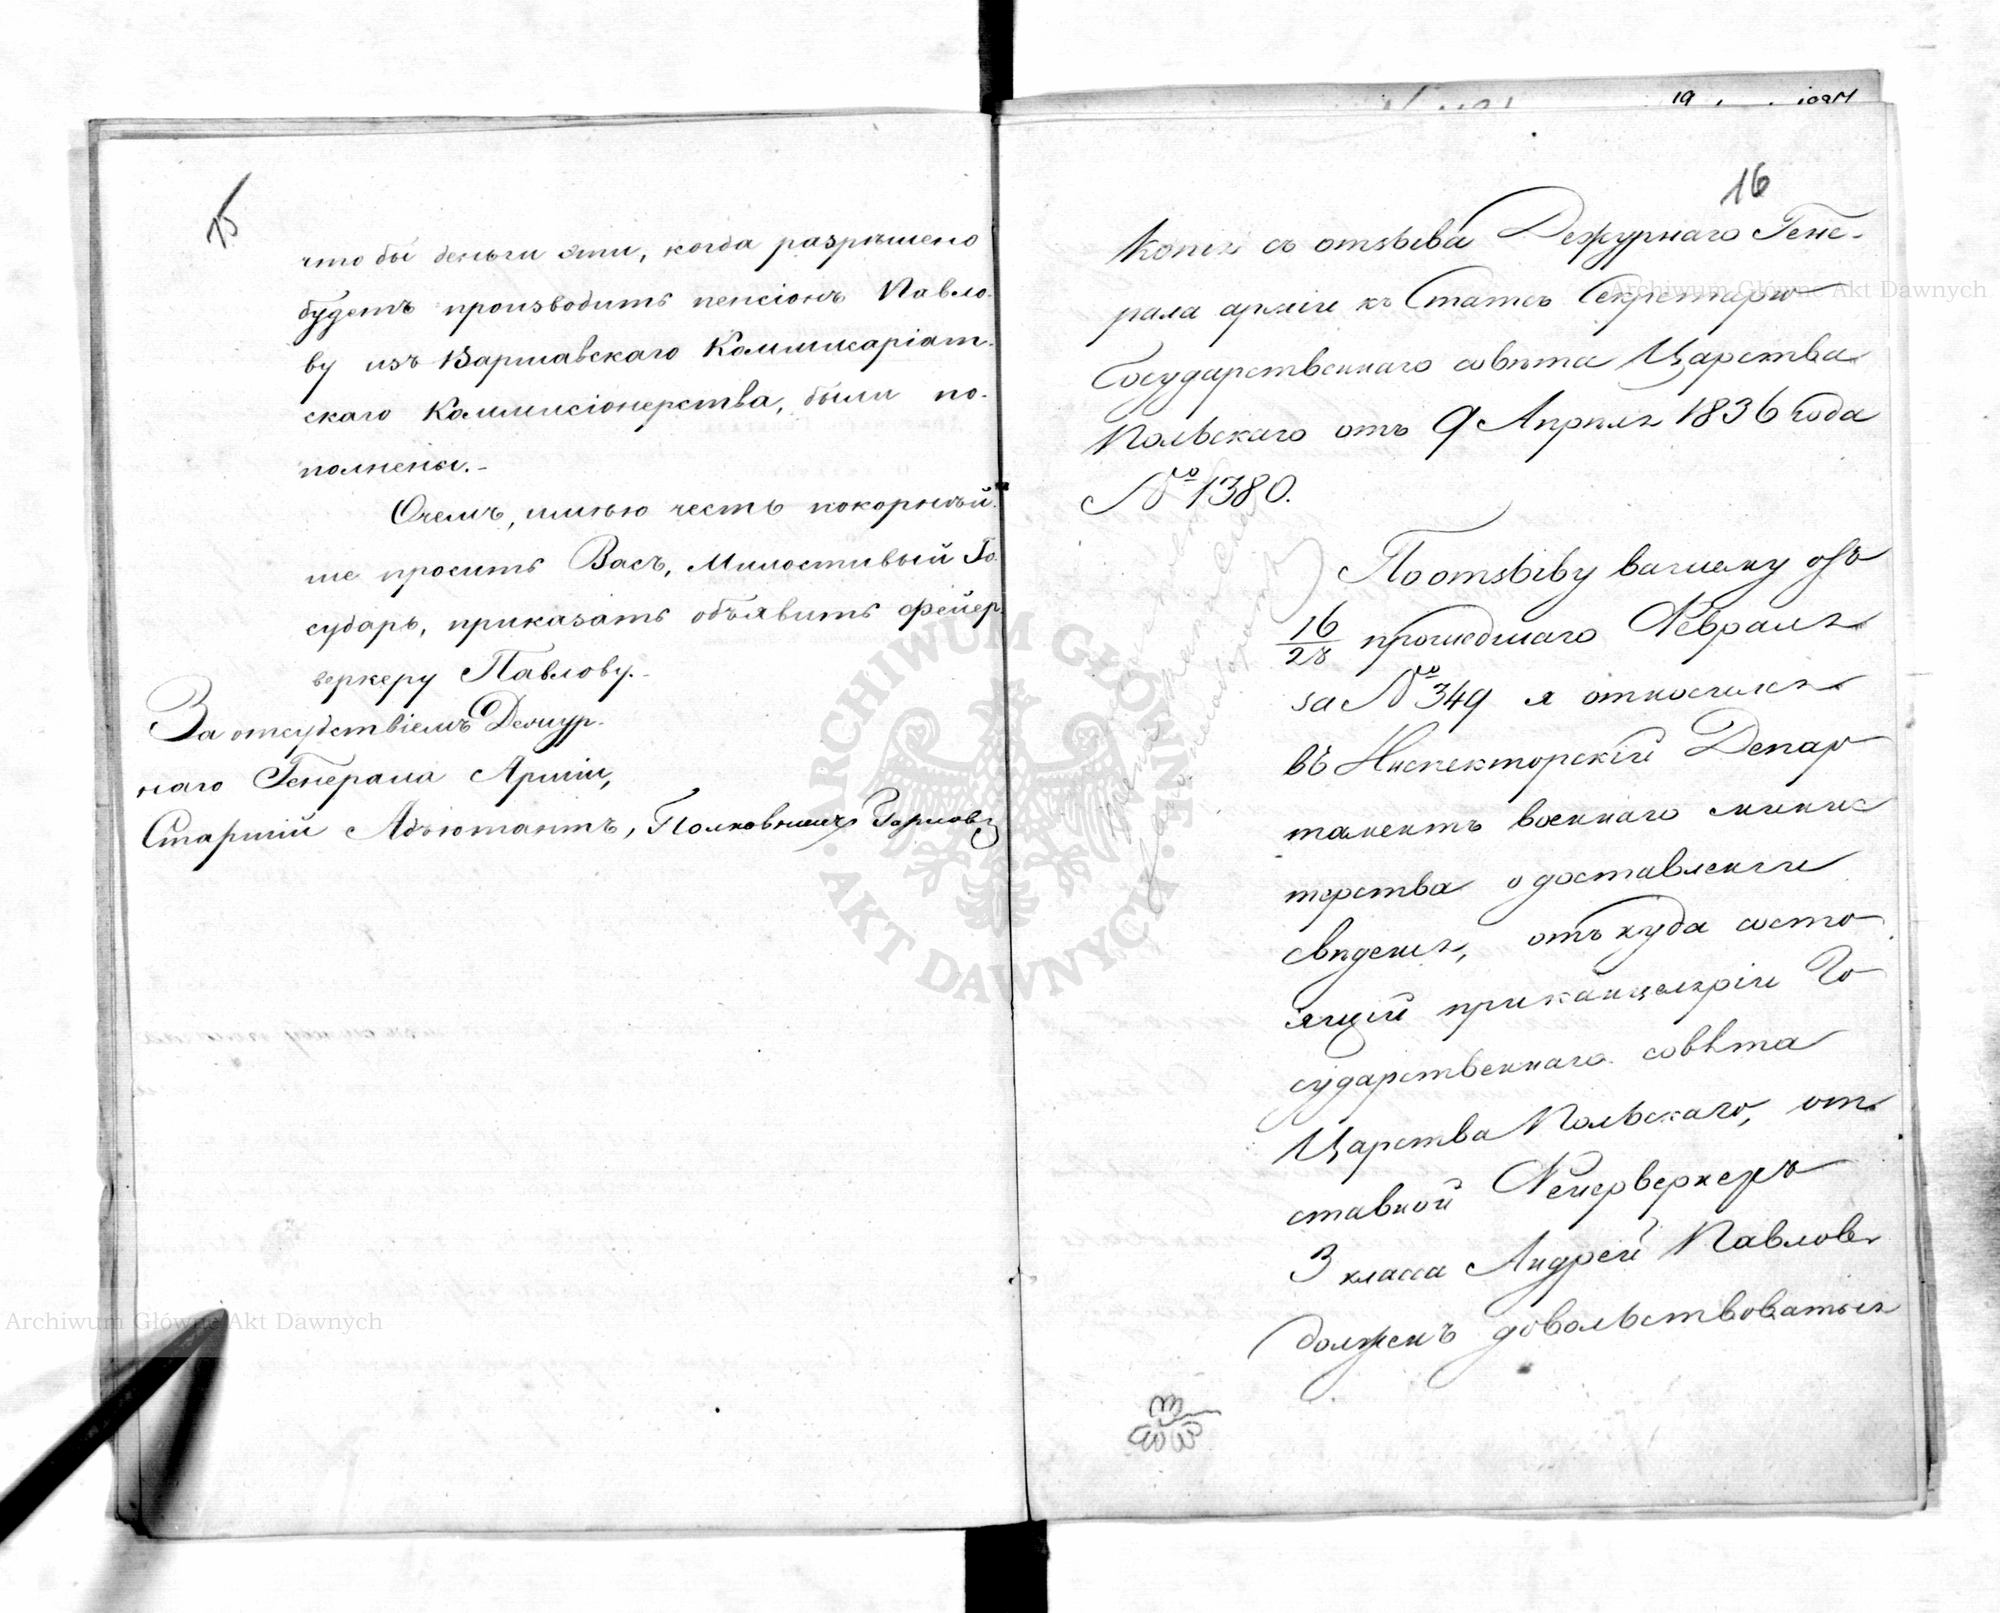 15
что бы деньги эти, когда разрѣшено
будетъ производить пенсіонъ Павло-
ву изъ Варшавскаго Коммисаріат-
скаго Коммисіонерства, были по-
полнены.-
Очемъ, имѣю честь покорнѣй-
ше просить Васъ, Милостивый Го-
сударь, приказать объявить фейер-
веркеру Павлову.-
За отсудствіемъ Дежур-
наго Генерала Арміи,
Старшій Адъютантъ, Полковникъ
19
16
Копія съ отзыва Дежурнаго Гене-
рала арміи къ Статсъ Секретарю
Государственнаго совѣта Царства
Польскаго отъ 9 Апрѣля 1836 года
№ 1380.
По отзыву вашему отъ
16/28 прошедшаго Февраля
за № 349 я относился
въ Инспекторскій Депар
таментъ военнаго минис
терства о доставленіи
сведения, отъ куда состо
ящій при канцеляріи Го
сударственнаго совѣта
Царства Польскаго, от
ставной Фейерверкеръ
3 класса Андрей Павлов
долженъ довольствоваться
Archiwum Główne Akt Dawnych
Archiwum Główne Akt Dawnych
ARCHIWUM GŁÓWNE AKT DAWNYCH